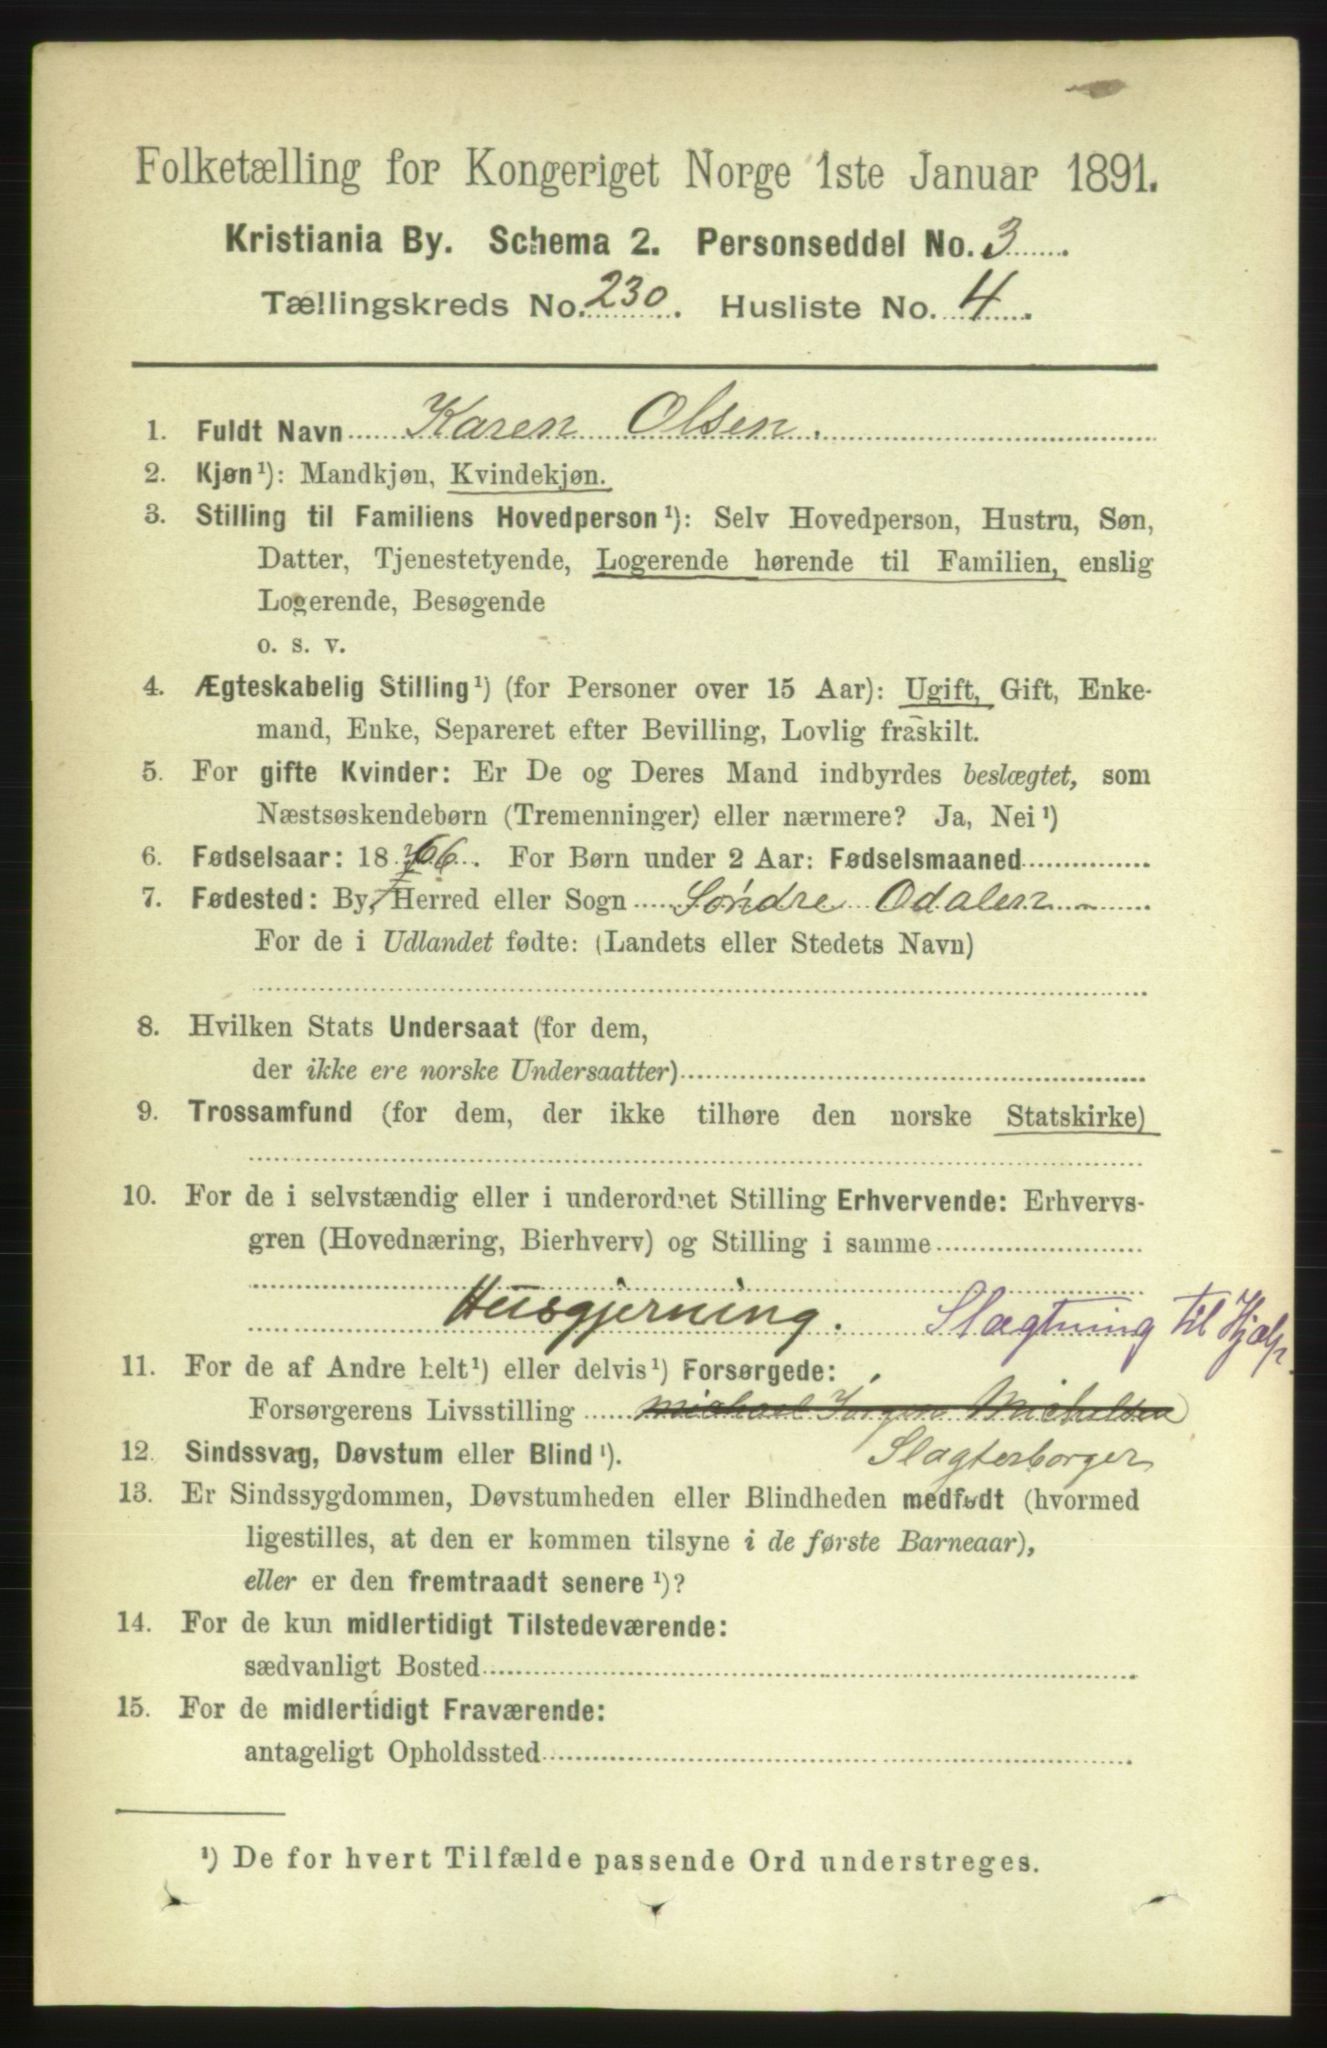 Folketælling for Kongeriget Norge 1ste Januar 1891.
Kristiania By. Schema 2. Personseddel No. 3
Tællingskreds No. 230. Husliste No. 4.
1. Fuldt Navn Karen Olsen.
2. Kjøn¹): Mandkjøn, Kvindekjøn.
3. Stilling til Familiens Hovedperson¹): Selv Hovedperson, Hustru, Søn,
Datter, Tjenestetyende, Logerende hørende til Familien, enslig
Logerende, Besøgende
o. s. v.
4. Ægteskabelig Stilling¹) (for Personer over 15 Aar): Ugift, Gift, Enke-
mand, Enke, Separeret efter Bevilling, Lovlig fraskilt.
5. For gifte Kvinder: Er De og Deres Mand indbyrdes beslægtet, som
Næstsøskendebørn (Tremenninger) eller nærmere? Ja, Nei¹)
6. Fødselsaar: 1866. For Børn under 2 Aar: Fødselsmaaned
7. Fødested: By, Herred eller Sogn Søndre Odalen
For de i Udlandet fødte: (Landets eller Stedets Navn)
8. Hvilken Stats Undersaat (for dem,
der ikke ere norske Undersaatter)
9. Trossamfund (for dem, der ikke tilhøre den norske Statskirke)
10. For de i selvstændig eller i underordnet Stilling Erhvervende: Erhvervs-
gren (Hovednæring, Bierhverv) og Stilling i samme
Husgjerning. Slagtning til Hjælp.
11. For de af Andre helt¹) eller delvis¹) Forsørgede:
Forsørgerens Livsstilling Michael Jørgen Michelsen
Slagterborger
12. Sindssvag, Døvstum eller Blind¹).
13. Er Sindssygdommen, Døvstumheden eller Blindheden medfødt (hvormed
ligestilles, at den er kommen tilsyne i de første Barneaar),
eller er den fremtraadt senere¹)?
14. For de kun midlertidigt Tilstedeværende:
sædvanligt Bosted
15. For de midlertidigt Fraværende:
antageligt Opholdssted
¹) De for hvert Tilfælde passende Ord understreges.